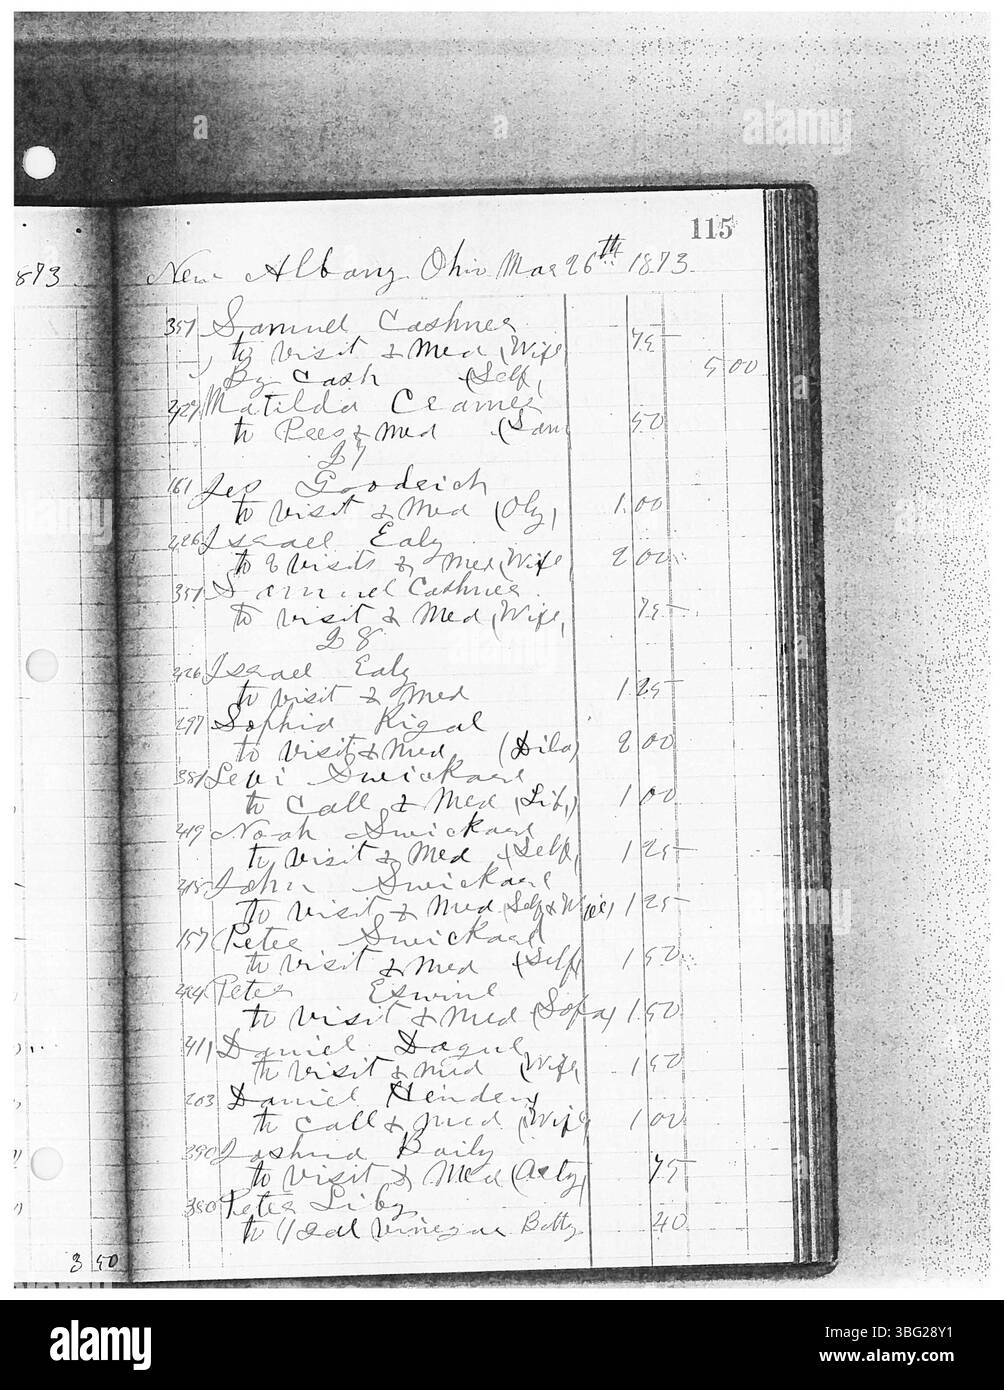 115
873
New Albany Ohio Mar 26th 1873
357 Samuel Cashner
to visit & Med (Wife) 75
By Cash (Self) 5 00
Matilda Cramer
to Pres & Med (Sam 50
27
161 Goodrich
to visit & Med (Oly) 1.00
226 Israel Ealy
to 2 visits & Med Wife 2 00
357 Samuel Cashner
to visit & Med (Wife) 75
28
226 Israel Ealy
to visit & Med 1 25
297 Sophia Rigal
to visit & Med 2 00
381 Levi Swickard
to Call & Med (Lib) 1 00
219 Noah Swickard
to visit & Med (Self) 1 25
John Swickard
to visit & Med Self & Wife 1 25
157 Peter Swickard
to visit & Med (Self) 1 50
Peter Eswine
to visit & Med 1 50
411 Daniel Dague
to visit & Med (Wife) 1 50
203 Daniel Henden
to Call & Med (Wife) 1 00
390 Joshua Baily
to visit & Med 75
380 Peter Liby
to 1 gal vinegar 40
3 50
alamy
Image ID: 3BG28Y1
www.alamy.com